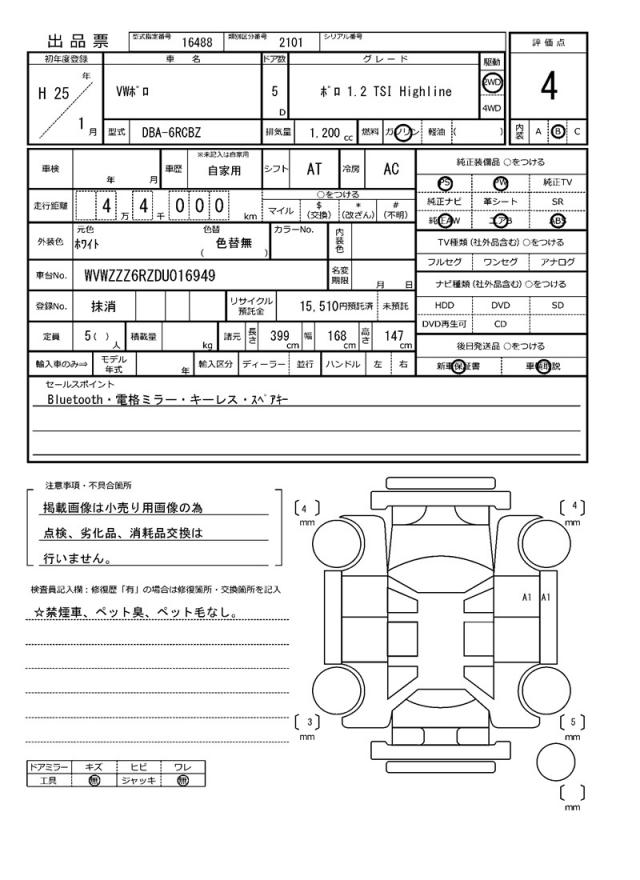 出品票 型式指定番号 16488 類別区分番号 2101 シリアル番号
評価点
4
内装 A B C
初年度登録 車名 ドア数 グレード 駆動
H 25 年 1 月
VWﾎﾟﾛ
5 D
ﾎﾟﾛ 1.2 TSI Highline
2WD
4WD
型式 DBA-6RCBZ 排気量 1.200 cc 燃料 ガソリン 軽油 ( )
車検 年 月 車歴 ※未記入は自家用 自家用 シフト AT 冷房 AC
走行距離 4 万 4 千 0 0 0 km
○をつける
マイル $ (交換) * (改ざん) # (不明)
外装色 元色 ﾎﾜｲﾄ 色替 ( 色替無 ) カラーNo. 内装色
車台No. WVWZZZ6RZDU016949 名変期限 月 日
登録No. 抹消 リサイクル預託金 15,510円預託済 未預託
定員 5( ) 人 積載量 kg 諸元 長さ 399 cm 幅 168 cm 高さ 147 cm
輸入車のみ⇒ モデル年式 年 輸入区分 ディーラー 並行 ハンドル 左 右
純正装備品 ○をつける
PS PW 純正TV
純正ナビ 革シート SR
純正AW エアB ABS
TV種類(社外品含む) ○をつける
フルセグ ワンセグ アナログ
ナビ種類(社外品含む) ○をつける
HDD DVD SD
DVD再生可 CD
後日発送品 ○をつける
新車保証書 車輌取説
セールスポイント
Bluetooth・電格ミラー・キーレス・ｽﾍﾟｱｷｰ
注意事項・不具合箇所
掲載画像は小売り用画像の為
点検、劣化品、消耗品交換は
行いません。
検査員記入欄：修復歴「有」の場合は修復箇所・交換箇所を記入
☆禁煙車、ペット臭、ペット毛なし。
ドアミラー キズ ヒビ ワレ
工具 無 ジャッキ 無
〔 4 〕 mm
〔 4 〕 mm
A1 A1
〔 3 〕 mm
〔 5 〕 mm
〔 〕 mm